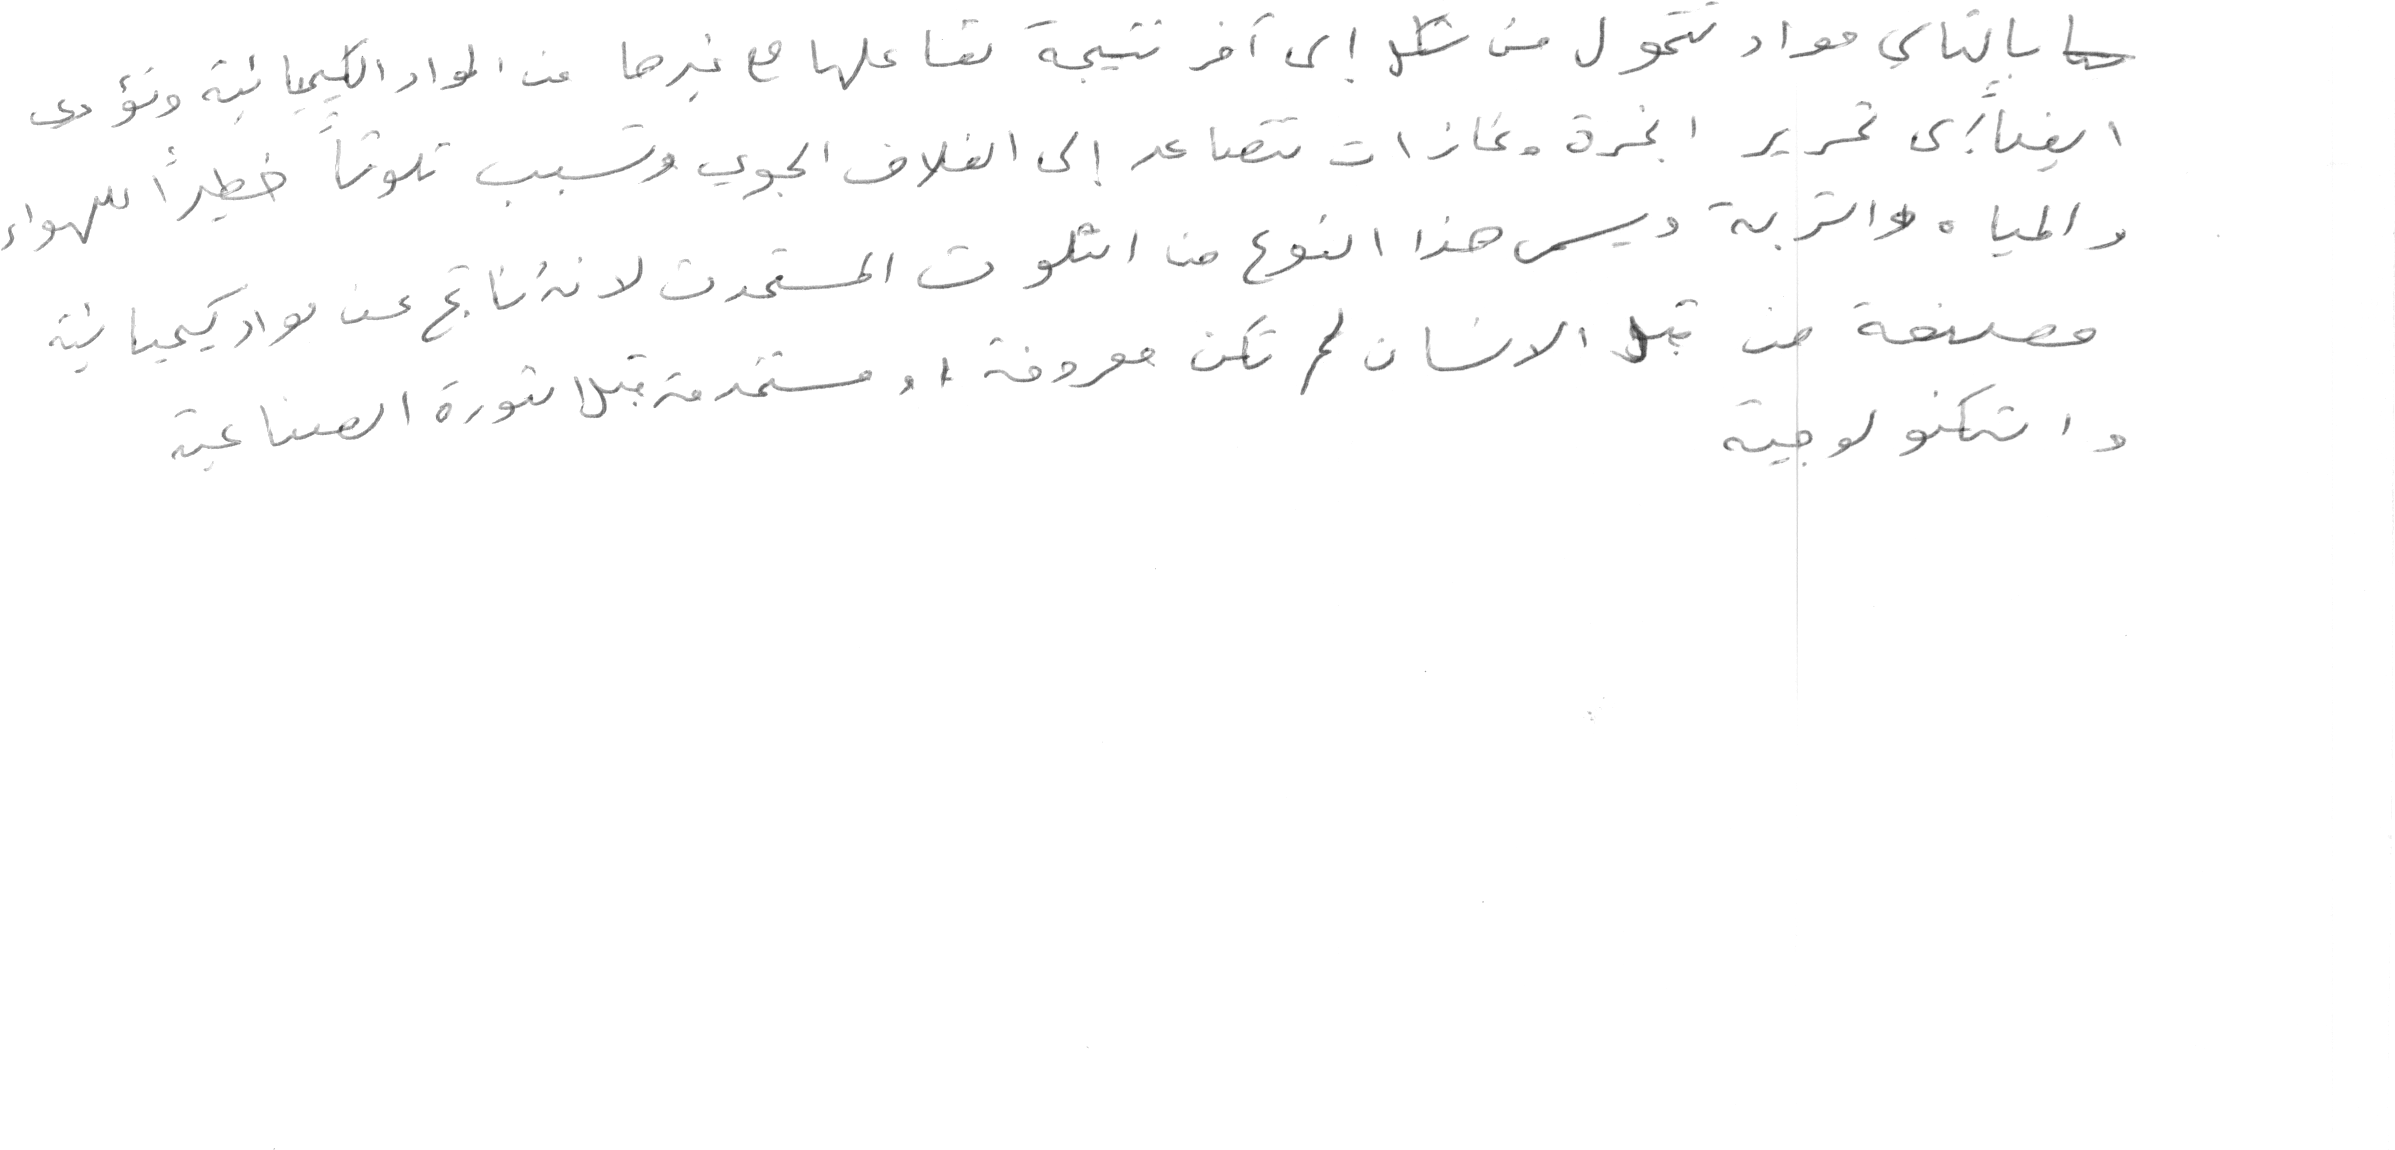 بالتالي مواد تتحول من شكل إلى آخر نتيجة تفاعلها مع غيرها من المواد الكيميائية وتؤدي
ايضاً إلى تحرير ابخرة وغازات تتصاعد إلى الغلاف الجوي وتسبب تلوثاً خطيراً للهواء
والمياه والتربة ويسمى هذا النوع من التلوث المستحدث لانه ناتج عن مواد كيميائية
مصنعة من قبل الانسان لم تكن معروفة او مستخدمة قبل الثورة الصناعية
والتكنولوجية